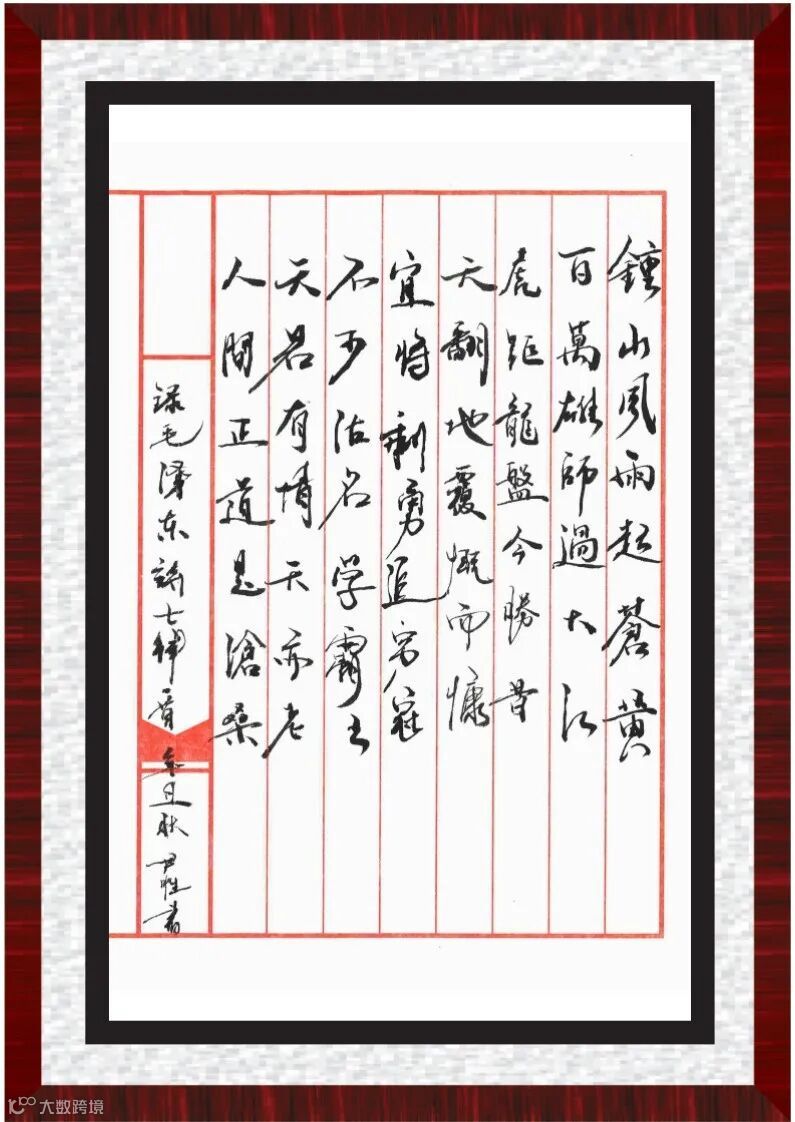 鍾山風雨起蒼黄
百萬雄師過大江
虎距龍盤今勝昔
天翻地覆慨而慷
宜將剩勇追穷寇
不可沽名学霸王
天若有情天亦老
人間正道是滄桑
録毛澤东詩七律首 辛丑秋 書
大数跨境